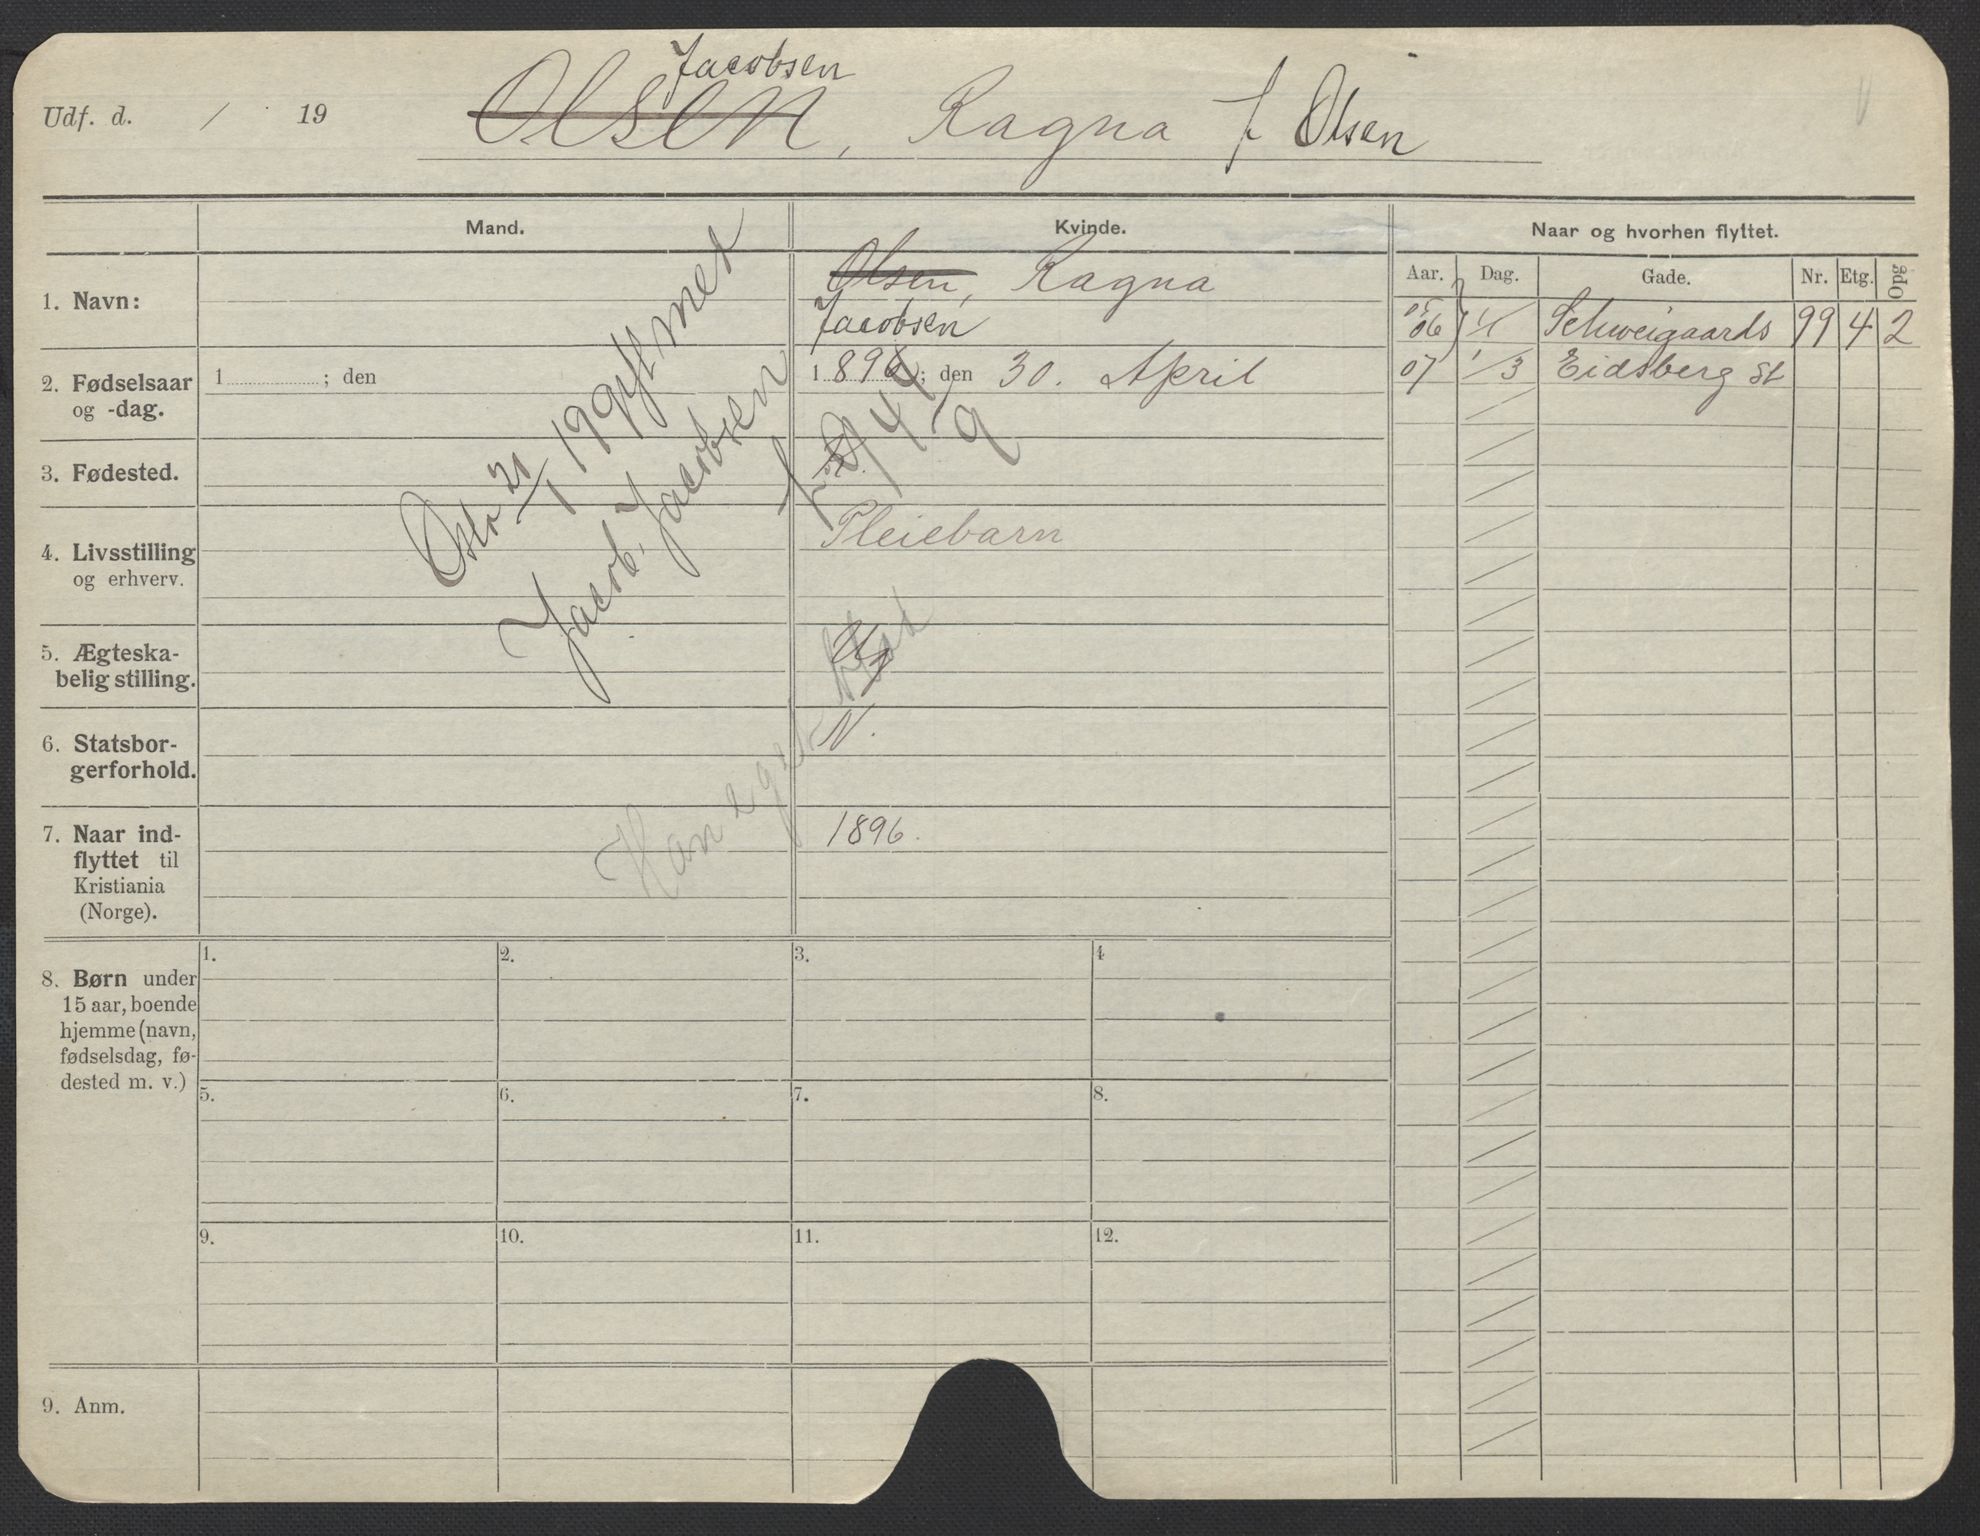 Jacobsen
Udf. d. / 19 Olsen, Ragna f Olsen
Mand. Kvinde. Naar og hvorhen flyttet.
Aar. Dag. Gade. Nr. Etg. Opg
1. Navn: Olsen, Ragna
Jacobsen
05
06 1/1 Schweigaards 99 4 2
07 1/3 Eidsberg st
2. Fødselsaar 1 ; den 1896; den 30. April
og -dag.
3. Fødested.
4. Livsstilling Pleiebarn
og erhverv.
5. Ægteska-
belig stilling.
6. Statsbor- N.
gerforhold.
7. Naar ind- 1896.
flyttet til
Kristiania
(Norge).
Oslo 21/1 199 gift med
Jacob Jacobsen
f. 9/4
Han eget
8. Børn under
15 aar, boende
hjemme (navn,
fødselsdag, fø-
dested m. v.)
1. 2. 3. 4
5. 6. 7. 8.
9. 10. 11. 12.
9. Anm.